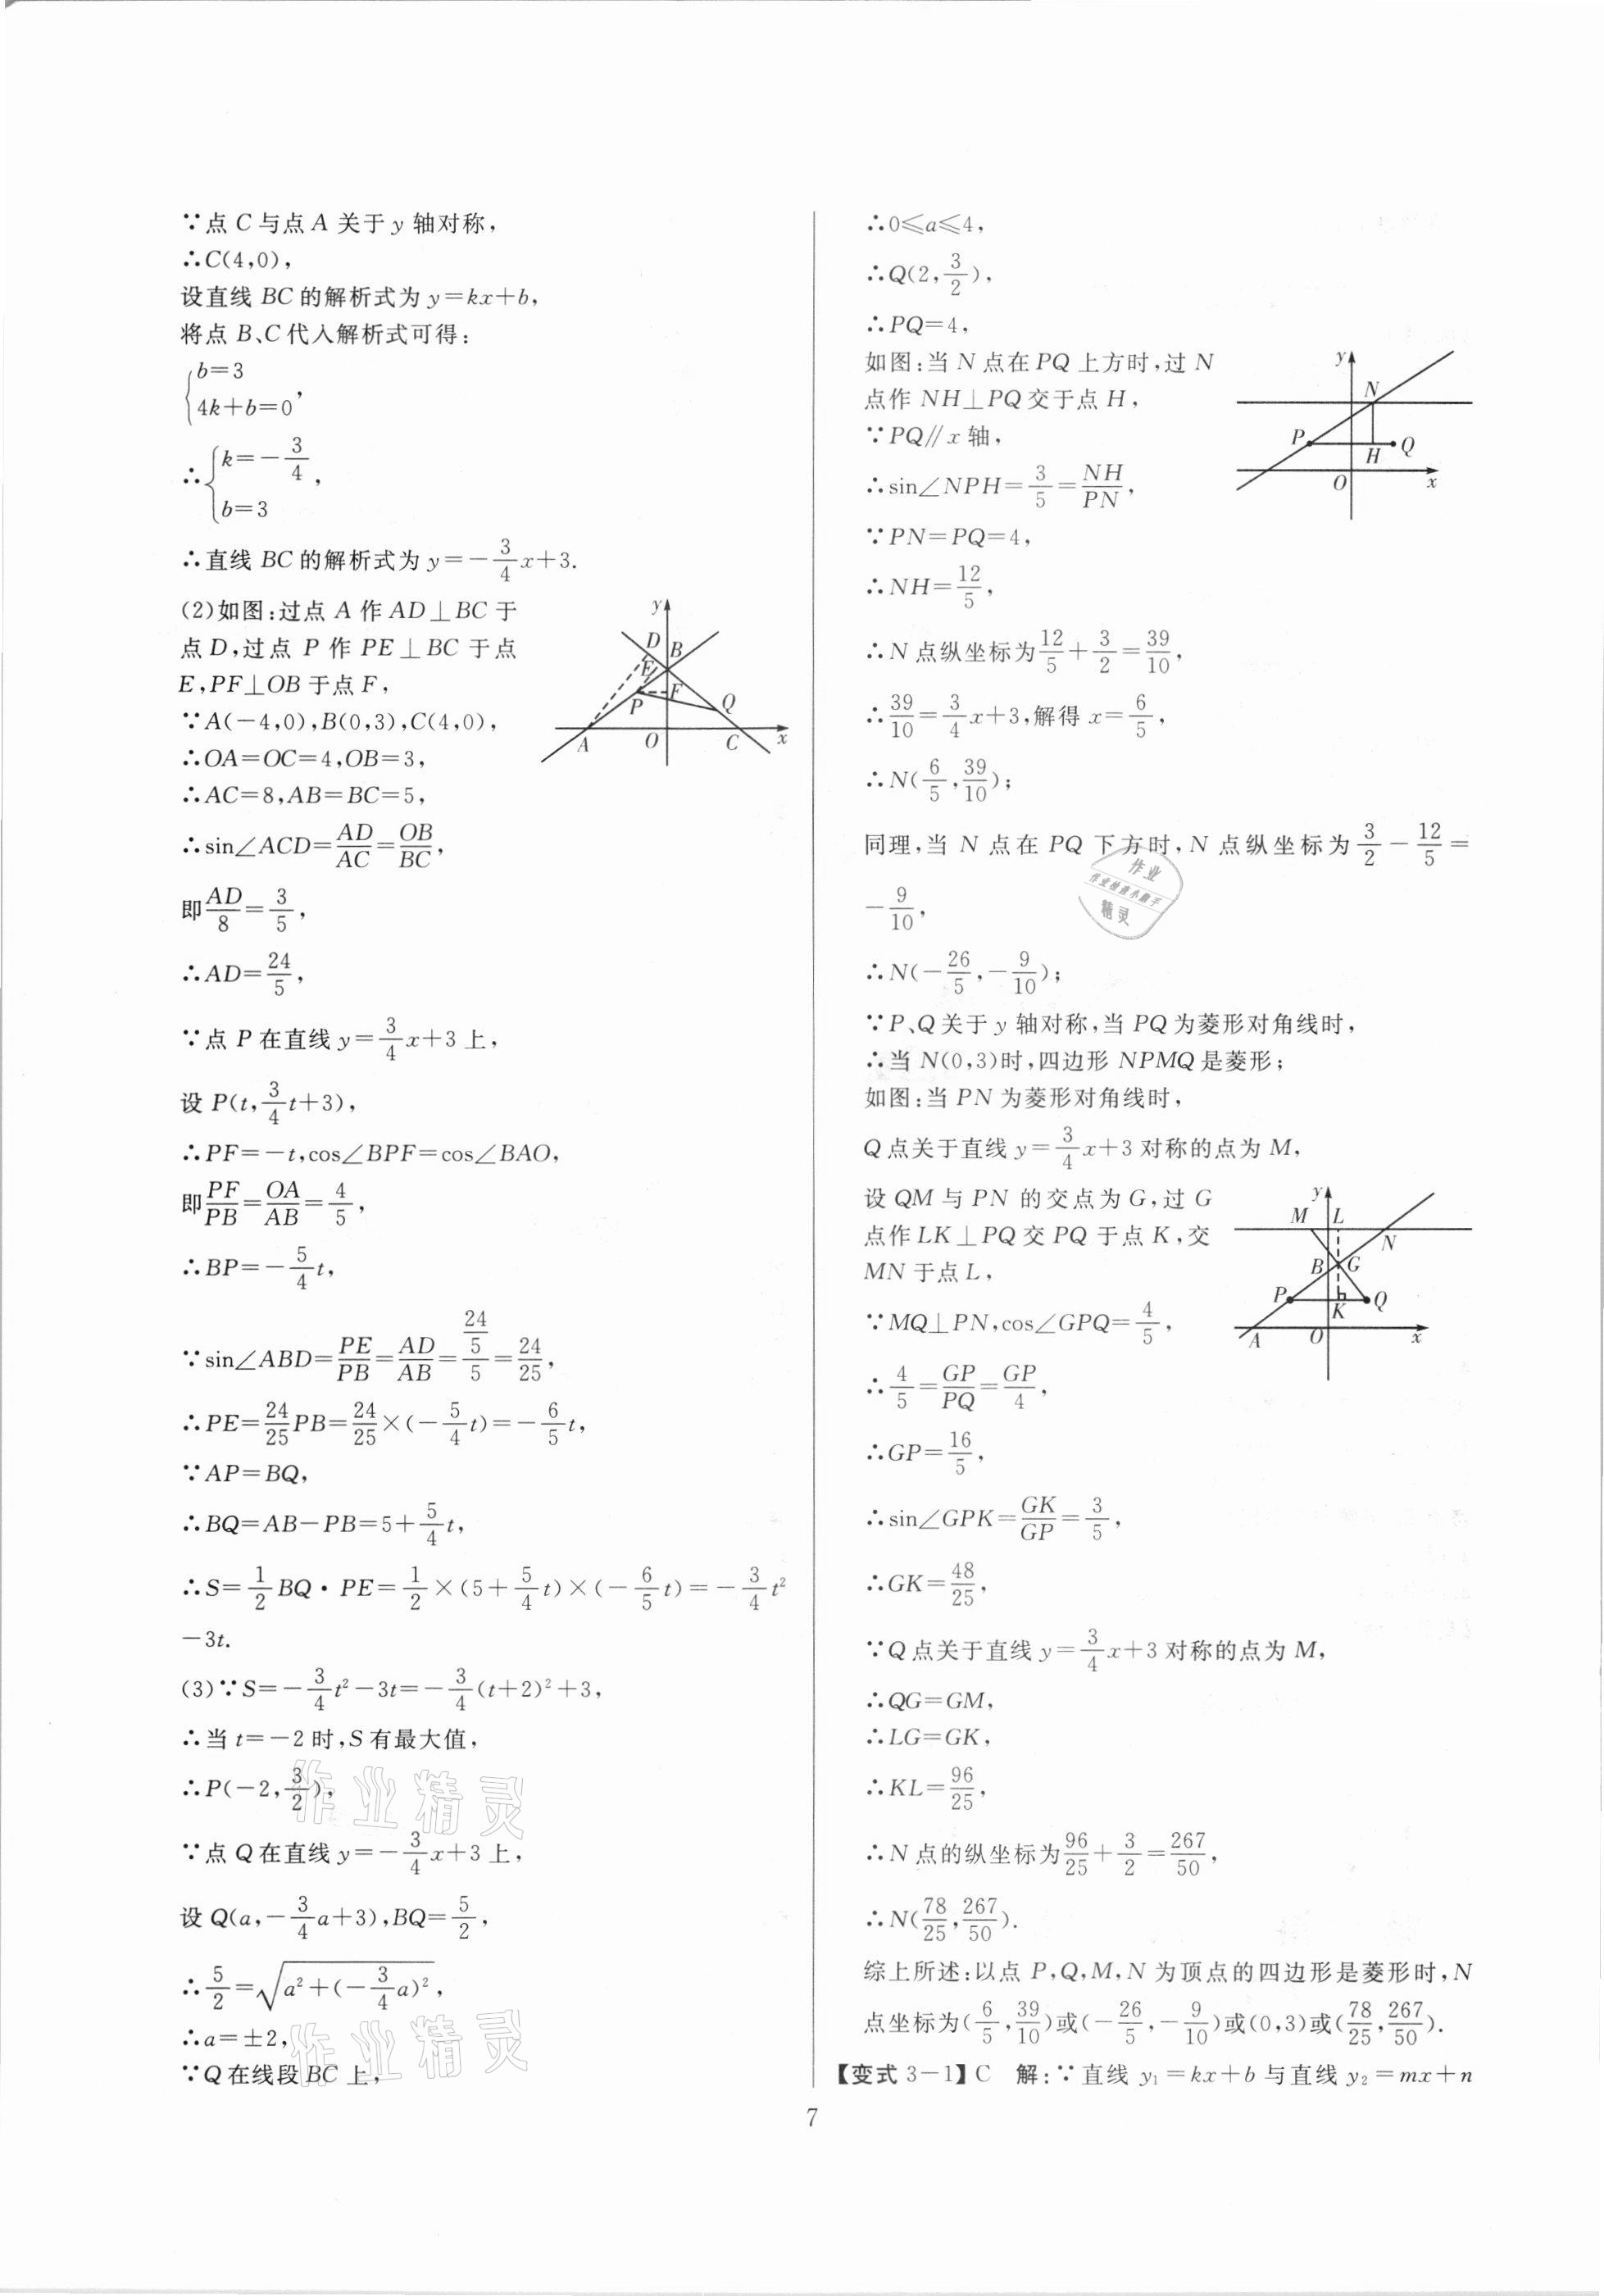 ∵点 C 与点 A 关于 y 轴对称，
∴C(4,0),
设直线 BC 的解析式为 y=kx+b,
将点 B、C 代入解析式可得：
{b=3
4k+b=0,
∴{k=-3/4
b=3,
∴直线 BC 的解析式为 y=-3/4x+3.
(2)如图：过点 A 作 AD⊥BC 于
点 D,过点 P 作 PE⊥BC 于点
E,PF⊥OB 于点 F,
∵A(-4,0),B(0,3),C(4,0),
∴OA=OC=4,OB=3,
∴AC=8,AB=BC=5,
∴sin∠ACD=AD/AC=OB/BC,
即AD/8=3/5,
∴AD=24/5,
∵点 P 在直线 y=3/4x+3 上，
设 P(t,3/4t+3),
∴PF=-t,cos∠BPF=cos∠BAO,
即PF/PB=OA/AB=4/5,
∴BP=-5/4t,
∵sin∠ABD=PE/PB=AD/AB=(24/5)/5=24/25,
∴PE=24/25PB=24/25×(-5/4t)=-6/5t,
∵AP=BQ,
∴BQ=AB-PB=5+5/4t,
∴S=1/2BQ·PE=1/2×(5+5/4t)×(-6/5t)=-3/4t²
-3t.
(3)∵S=-3/4t²-3t=-3/4(t+2)²+3,
∴当 t=-2 时,S 有最大值，
∴P(-2,3/2),
∵点 Q 在直线 y=-3/4x+3 上，
设 Q(a,-3/4a+3),BQ=5/2,
∴5/2=√(a²+(-3/4a)²),
∴a=±2,
∵Q 在线段 BC 上，
y
D
B
E
F
P
Q
A
O
C
x
∴0≤a≤4,
∴Q(2,3/2),
∴PQ=4,
如图：当 N 点在 PQ 上方时,过 N
点作 NH⊥PQ 交于点 H,
∵PQ∥x 轴，
∴sin∠NPH=3/5=NH/PN,
∵PN=PQ=4,
∴NH=12/5,
∴N 点纵坐标为12/5+3/2=39/10,
∴39/10=3/4x+3,解得 x=6/5,
∴N(6/5,39/10);
y
N
P
Q
H
O
x
同理,当 N 点在 PQ 下方时,N 点纵坐标为3/2-12/5=
-9/10,
∴N(-26/5,-9/10);
∵P、Q 关于 y 轴对称,当 PQ 为菱形对角线时，
∴当 N(0,3)时,四边形 NPMQ 是菱形；
如图：当 PN 为菱形对角线时，
Q 点关于直线 y=3/4x+3 对称的点为 M,
设 QM 与 PN 的交点为 G,过 G
点作 LK⊥PQ 交 PQ 于点 K,交
MN 于点 L,
∵MQ⊥PN,cos∠GPQ=4/5,
∴4/5=GP/PQ=GP/4,
∴GP=16/5,
∴sin∠GPK=GK/GP=3/5,
∴GK=48/25,
y
M
L
N
B
G
P
Q
K
A
O
x
∵Q 点关于直线 y=3/4x+3 对称的点为 M,
∴QG=GM,
∴LG=GK,
∴KL=96/25,
∴N 点的纵坐标为96/25+3/2=267/50,
∴N(78/25,267/50).
综上所述：以点 P,Q,M,N 为顶点的四边形是菱形时,N
点坐标为(6/5,39/10)或(-26/5,-9/10)或(0,3)或(78/25,267/50).
【变式 3-1】C 解：∵直线 y₁=kx+b 与直线 y₂=mx+n
7
作业
作业检查小助手
精灵
作业精灵
作业精灵